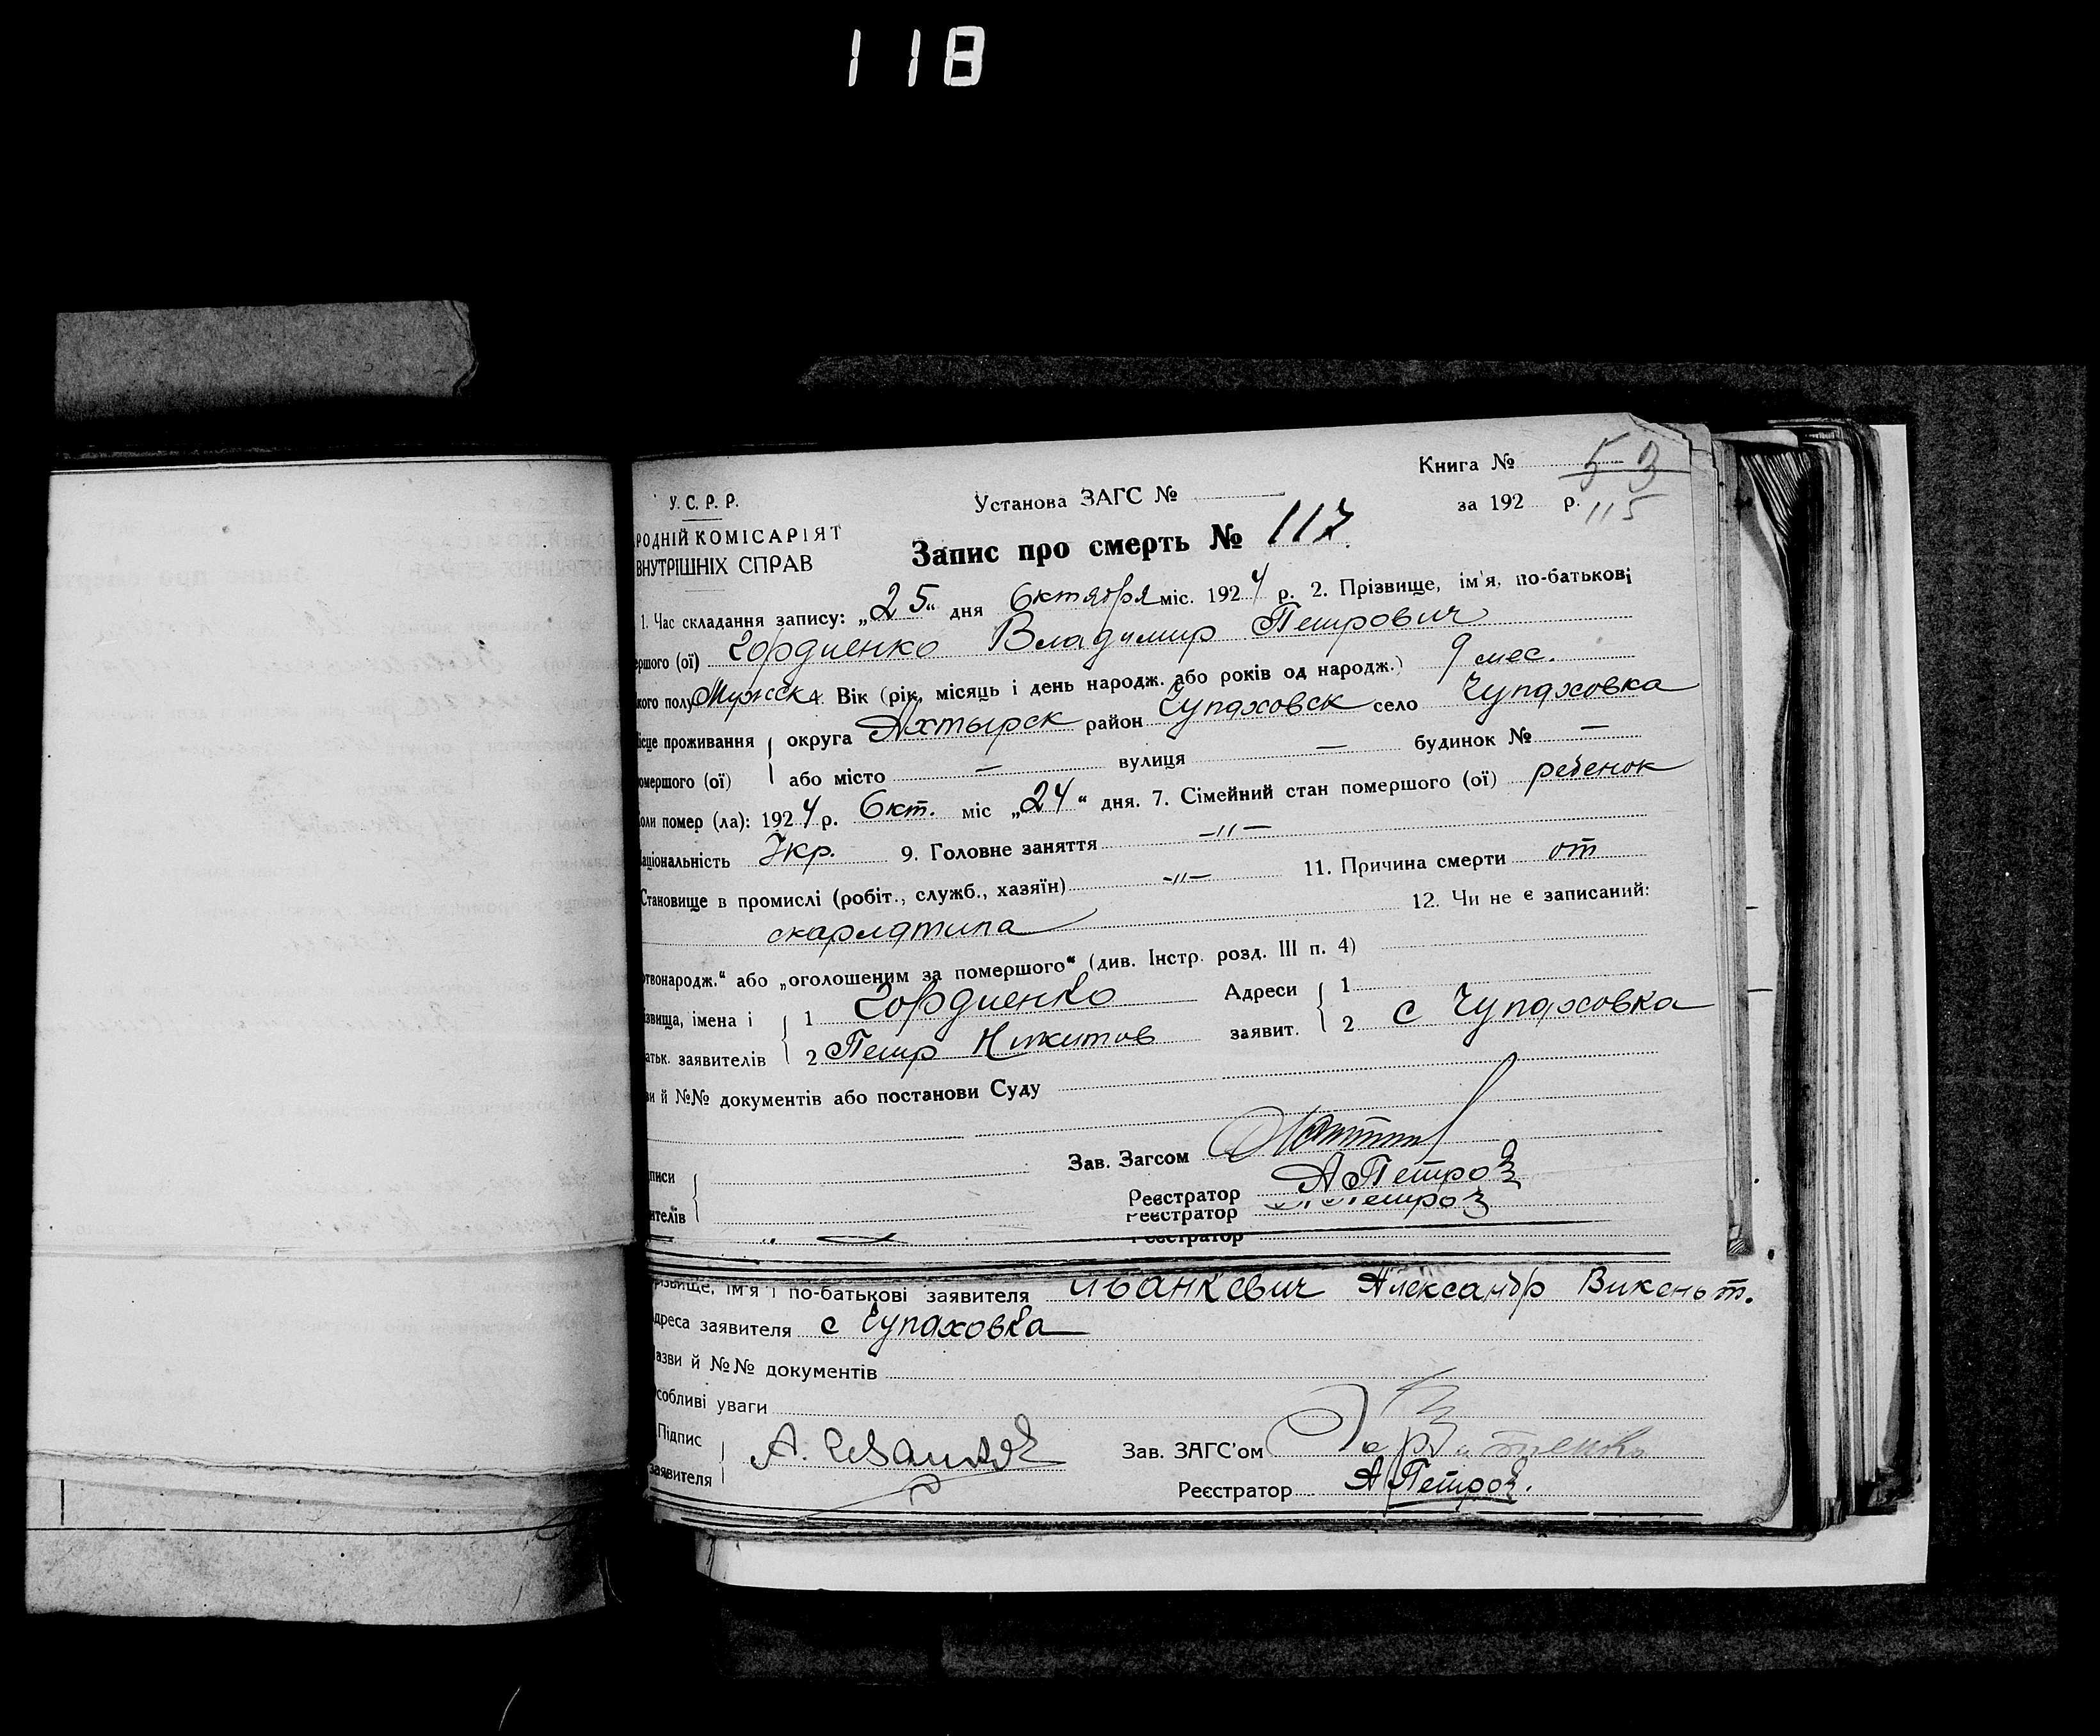 118
Книга № 53
У. С. Р. Р.
Установа ЗАГС №
за 192 р. 115
РОДНІЙ КОМІСАРІЯТ
ВНУТРІШНІХ СПРАВ
Запис про смерть № 117
1. Час складання запису: „25“ дня Октября міс. 1924 р. 2. Прізвище, ім'я, по-батькові
ершого (ої) Гордиенко Владимир Петрович
кого полу Мужска. Вік (рік, місяць і день народж. або років од народж.) 9 мес.
ісце проживання округа Ахтырск район Чупаховск село Чупаховка
омершого (ої) або місто — вулиця — будинок № —
оли помер (ла): 1924 р. Окт. міс „24“ дня. 7. Сімейний стан помершого (ої) ребенок
аціональність Укр. 9. Головне заняття —"—
Становище в промислі (робіт., служб., хазяїн) —"— 11. Причина смерти от
скарлатина 12. Чи не є записаний:
ртвонародж.“ або „оголошеним за помершого“ (див. Інстр. розд. III п. 4)
звища, імена і 1 Гордиенко Адреси 1
атьк. заявителів 2 Петр Никитов заявит. 2 с Чупаховка
зи й №№ документів або постанови Суду
Зав. Загсом
писи
Реєстратор А Петров
ителів
Реєстратор Петров
Реєстратор
різвище, ім'я і по-батькові заявителя Иванкевич Александр Викеньт.
дреса заявителя с Чупаховка
азви й №№ документів
собливі уваги
Підпис
заявителя
Зав. ЗАГС'ом
Реєстратор А Петров.